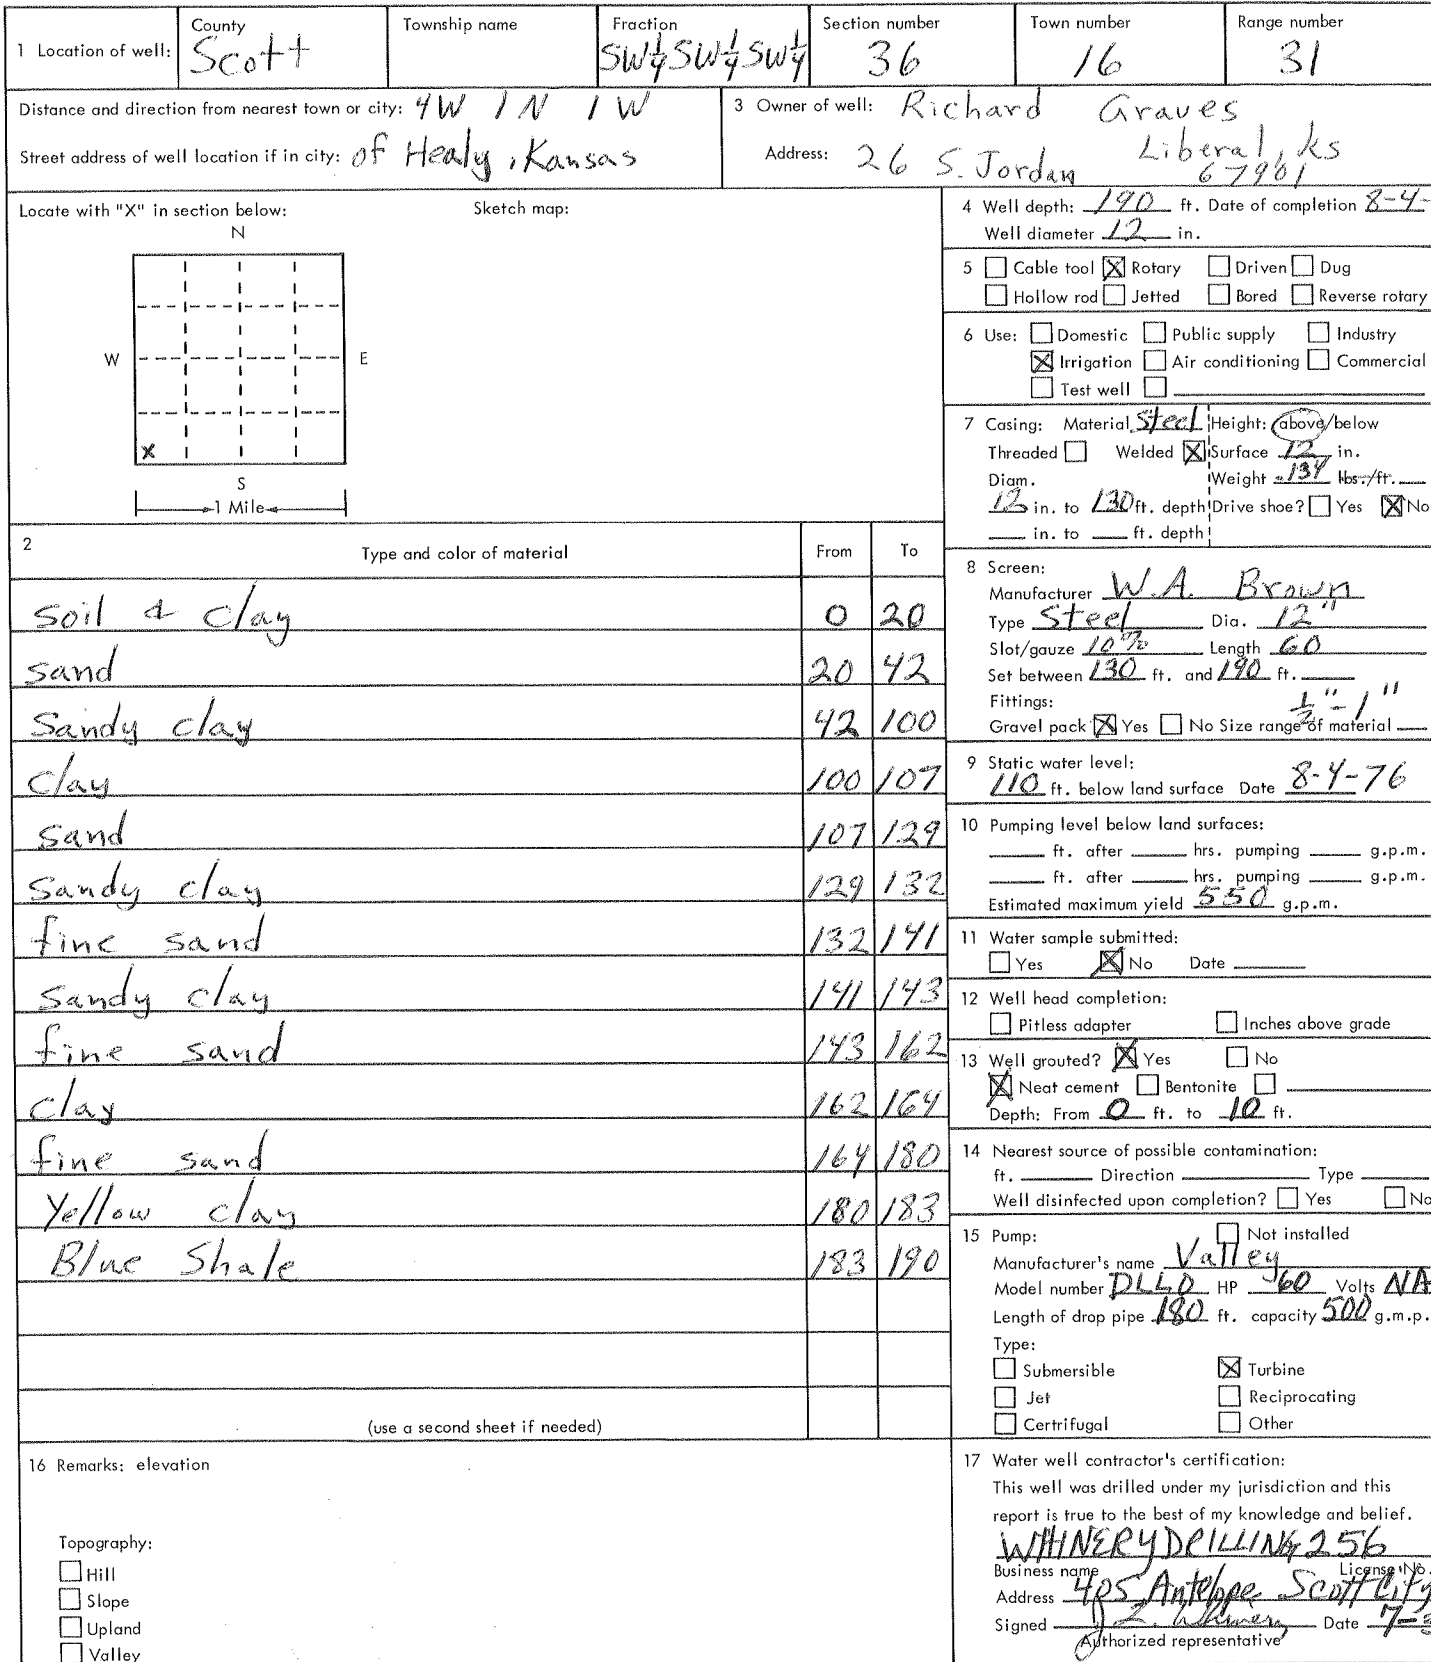 1 Location of well: County Scott Township name Fraction SW¼ SW¼ SW¼ Section number 36 Town number 16 Range number 31
Distance and direction from nearest town or city: 4W 1N 1W
Street address of well location if in city: of Healy, Kansas
3 Owner of well: Richard Graves
Address: 26 S. Jordan Liberal, Ks 67901
Locate with "X" in section below: Sketch map:
N
W E
X
S
1 Mile
2 Type and color of material From To
Soil & Clay 0 20
sand 20 42
Sandy clay 42 100
Clay 100 107
sand 107 129
Sandy clay 129 132
fine sand 132 141
Sandy clay 141 143
fine sand 143 162
Clay 162 164
fine sand 164 180
Yellow clay 180 183
Blue Shale 183 190
(use a second sheet if needed)
16 Remarks: elevation
Topography:
Hill
Slope
Upland
Valley
4 Well depth: 190 ft. Date of completion 8-4-
Well diameter 12 in.
5 Cable tool X Rotary Driven Dug
Hollow rod Jetted Bored Reverse rotary
6 Use: Domestic Public supply Industry
X Irrigation Air conditioning Commercial
Test well
7 Casing: Material Steel Height: above/below
Threaded Welded X Surface 12 in.
Diam. Weight .134 lbs./ft.
12 in. to 130 ft. depth Drive shoe? Yes X No
in. to ft. depth
8 Screen:
Manufacturer W.A. Brown
Type Steel Dia. 12"
Slot/gauze 10% Length 60
Set between 130 ft. and 190 ft.
Fittings: ½"-1"
Gravel pack X Yes No Size range of material
9 Static water level:
110 ft. below land surface Date 8-4-76
10 Pumping level below land surfaces:
ft. after hrs. pumping g.p.m.
ft. after hrs. pumping g.p.m.
Estimated maximum yield 550 g.p.m.
11 Water sample submitted:
Yes X No Date
12 Well head completion:
Pitless adapter Inches above grade
13 Well grouted? X Yes No
X Neat cement Bentonite
Depth: From 0 ft. to 10 ft.
14 Nearest source of possible contamination:
ft. Direction Type
Well disinfected upon completion? Yes No
15 Pump: Not installed
Manufacturer's name Valley
Model number DLLD HP 60 Volts NA
Length of drop pipe 180 ft. capacity 500 g.m.p.
Type:
Submersible X Turbine
Jet Reciprocating
Certrifugal Other
17 Water well contractor's certification:
This well was drilled under my jurisdiction and this
report is true to the best of my knowledge and belief.
WHINERY DRILLING 256
Business name License No.
Address 405 Antelope Scott City
Signed Whinery Date 7-
Authorized representative